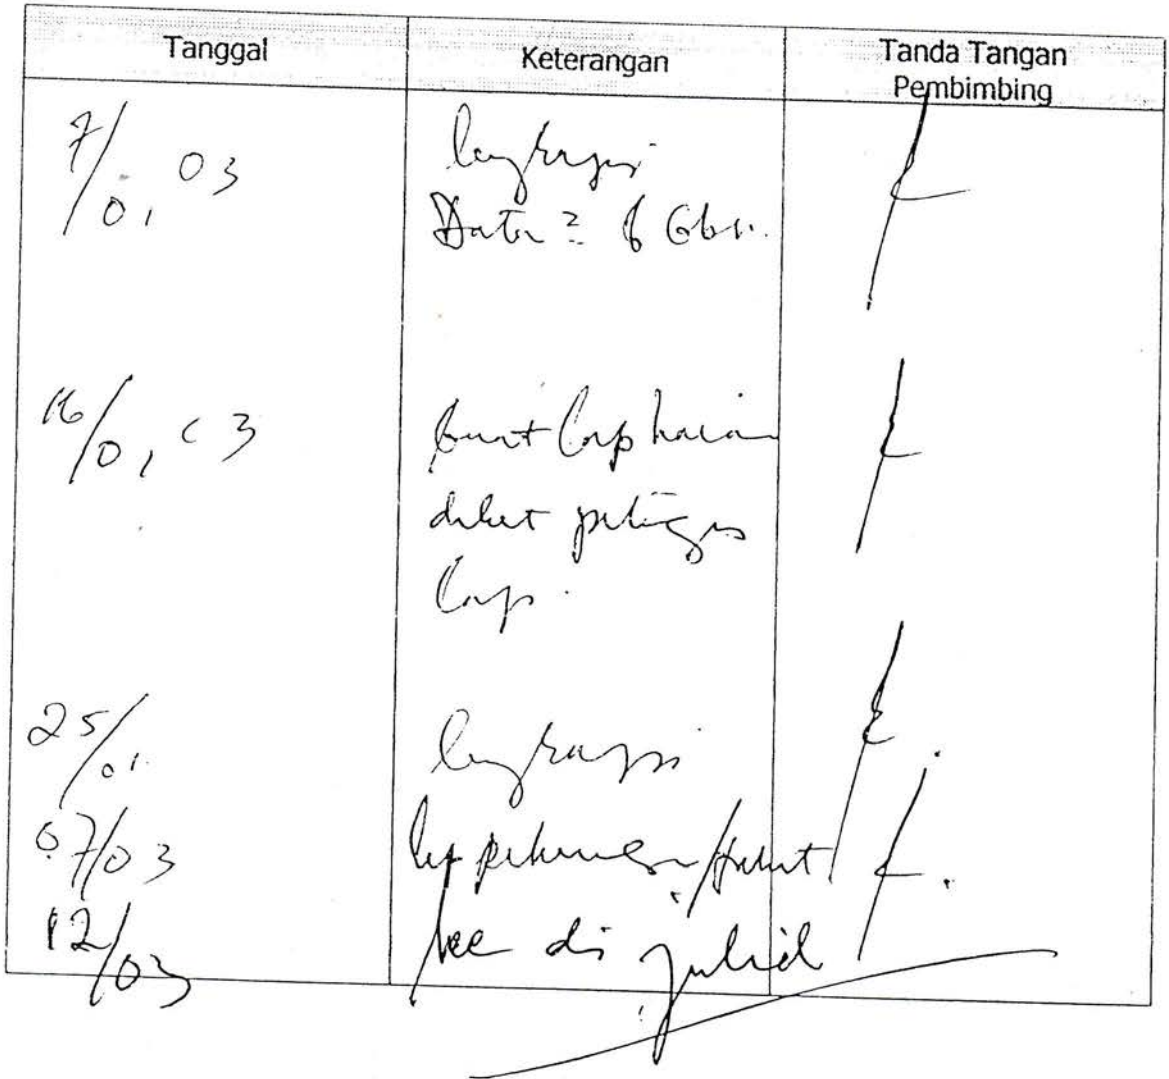 Tanggal Keterangan Tanda Tangan
Pembimbing
7/01 03 lengkapi
Data² & Gbr.
16/01 03 buat lap harian
lap.
25/01 lengkapi
07/03
12/03 Acc di jilid